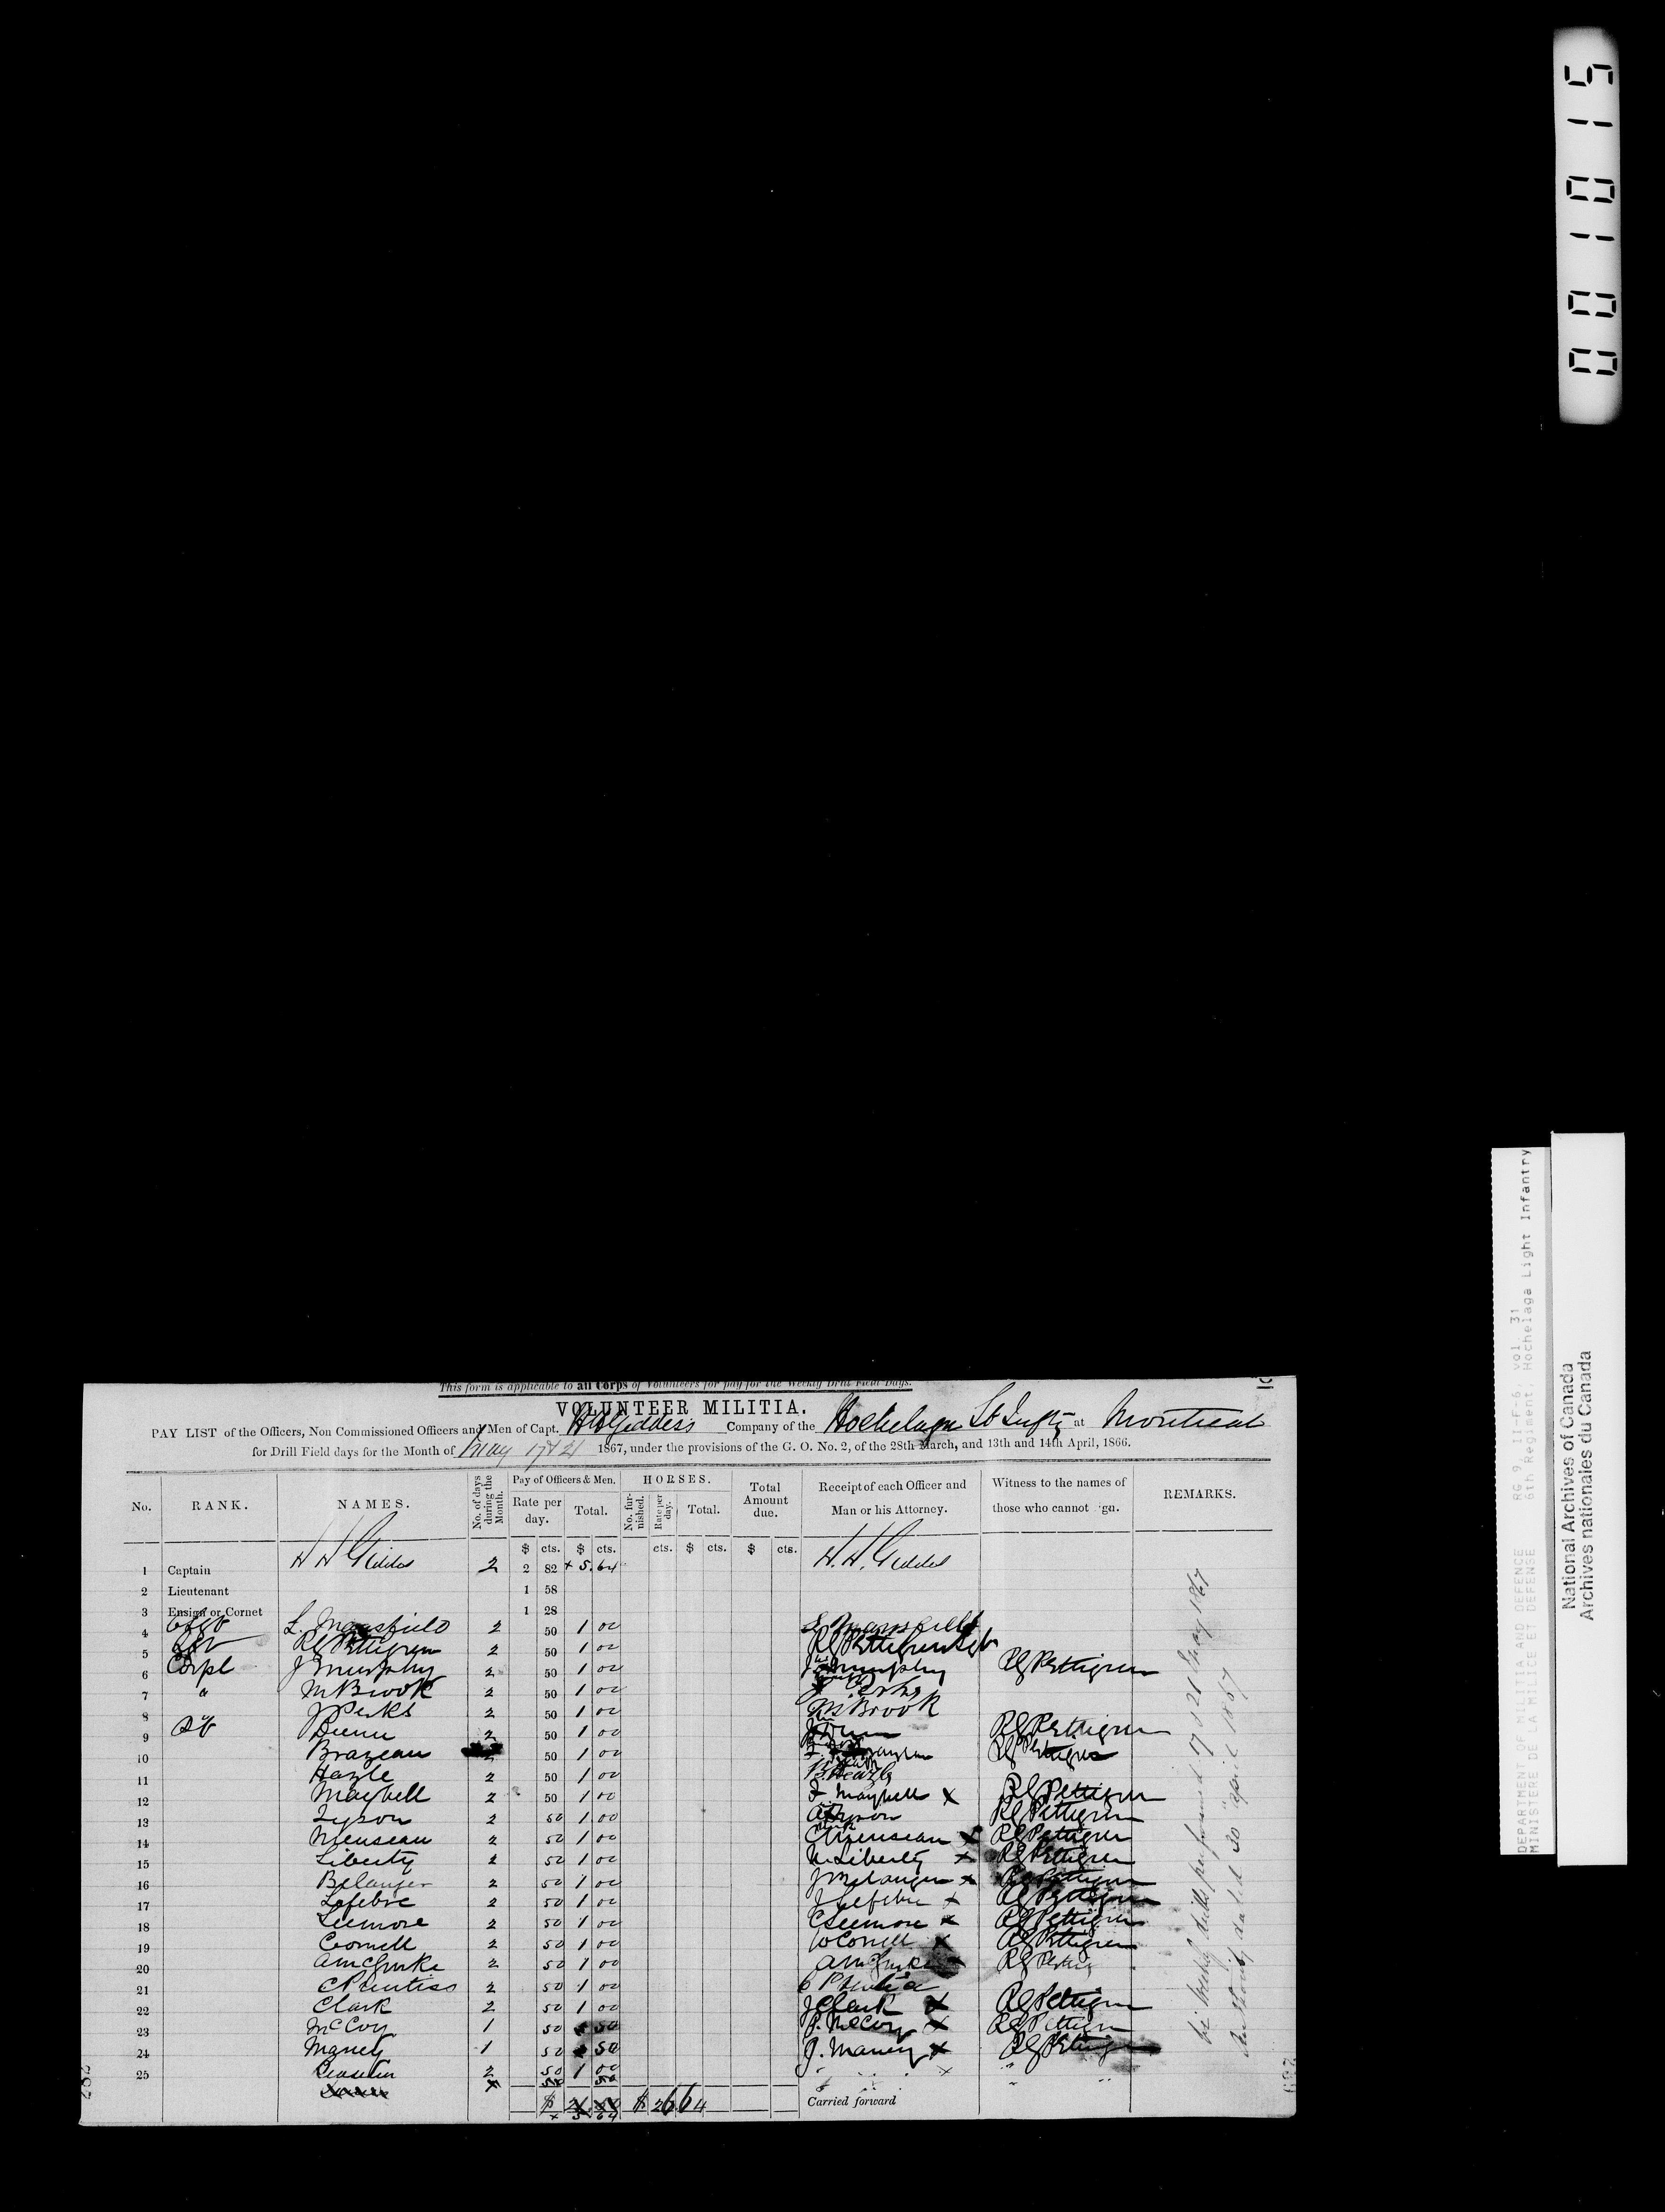 This form is applicable to all Corps of Volunteers for pay for the Weekly Drill Field Days.
VOLUNTEER MILITIA.
PAY LIST of the Officers, Non Commissioned Officers and Men of Capt. H H Geddes Company of the Hochelaga Lt Infty at Montreal
for Drill Field days for the Month of May 17 & 21 1867, under the provisions of the G. O. No. 2, of the 28th March, and 13th and 14th April, 1866.
No. RANK. NAMES. No. of days during the Month. Pay of Officers & Men. Rate per day. Total. HORSES. No. furnished. Rate per day. Total. Total Amount due. Receipt of each Officer and Man or his Attorney. Witness to the names of those who cannot gn. REMARKS.
$ cts. $ cts. cts. $ cts. $ cts.
1 Captain H H Geddes 2 2 82 + 5.64 H. H. Geddes
2 Lieutenant 1 58
3 Ensign or Cornet 1 28
4 L. Mansfield 2 50 1 00 Mansfield
5 RG Pettigrew 2 50 1 00 RG Pettigrew
6 Corpl J Murphy 2 50 1 00 Murphy RG Pettigrew
7 " M Brook 2 50 1 00
8 J Perks 2 50 1 00 Ms Brook
9 2 50 1 00 RG Pettigrew
10 Brazeau 2 50 1 00 RG Pettigrew
11 Hazle 2 50 1 00 B. Heazle
12 Maybell 2 50 1 00 Maybell X RG Pettigrew
13 Tyson 2 50 1 00 A Tyson RG Pettigrew
14 Meuseau 2 50 1 00 Meuseau X RG Pettigrew
15 Liberty 2 50 1 00 Liberty X RG Pettigrew
16 Belanger 2 50 1 00 J Belanger X RG Pettigrew
17 Lefebre 2 50 1 00 J Lefebre X RG Pettigrew
18 Leemore 2 50 1 00 C Leemore X RG Pettigrew
19 Cornell 2 50 1 00 W Cornell X RG Pettigrew
20 A McGurke 2 50 1 00 A McGurke RG Pettig
21 C Prentiss 2 50 1 00 C Prentiss
22 Clark 2 50 1 00 J Clark X RG Pettigrew
23 McCoy 1 50 50 P. McCoy X RG Pettigrew
24 Maney 1 50 50 J. Maney X RG Pettigrew
25 2 50 1 00
$ $ 26 64 Carried forward
5 64
bi weekly drills performed 17 & 21 May 1867
Authority dated 30 April 1867
282
00101 5
DEPARTMENT OF MILITIA AND DEFENCE RG 9, II-F-6, vol. 31
MINISTERE DE LA MILICE ET DEFENSE 6th Regiment, Hochelaga Light Infantry
National Archives of Canada
Archives nationales du Canada